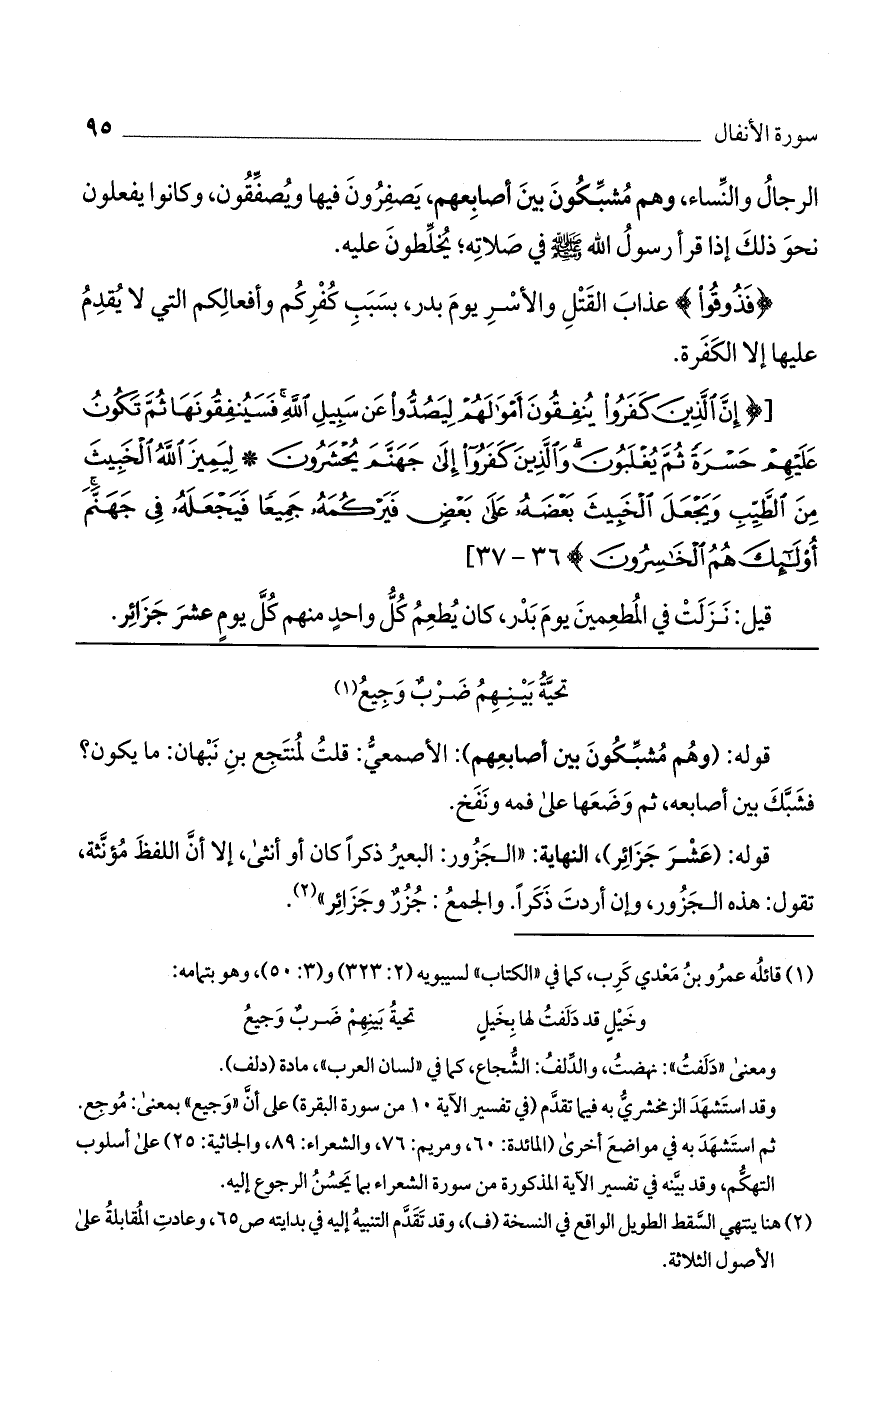 سورة الأنفال ٩٥
الرجالُ والنِّساء، وهم مُشبِّكُونَ بينَ أصابِعهم، يَصفِرُونَ فيها ويُصفِّقُون، وكانوا يفعلون
نحوَ ذلكَ إذا قرأ رسولُ الله ﷺ في صَلاتِه؛ يُخلِّطونَ عليه.
﴿فَذُوقُواْ﴾ عذابَ القَتْلِ والأسْرِ يومَ بدر، بسَبَبِ كُفْرِكُم وأفعالِكم التي لا يُقدِمُ
عليها إلا الكَفَرة.
[﴿إِنَّ ٱلَّذِينَ كَفَرُواْ يُنفِقُونَ أَمْوَٰلَهُمْ لِيَصُدُّواْ عَن سَبِيلِ ٱللَّهِ ۚ فَسَيُنفِقُونَهَا ثُمَّ تَكُونُ
عَلَيْهِمْ حَسْرَةً ثُمَّ يُغْلَبُونَ ۗ وَٱلَّذِينَ كَفَرُوٓاْ إِلَىٰ جَهَنَّمَ يُحْشَرُونَ * لِيَمِيزَ ٱللَّهُ ٱلْخَبِيثَ
مِنَ ٱلطَّيِّبِ وَيَجْعَلَ ٱلْخَبِيثَ بَعْضَهُۥ عَلَىٰ بَعْضٍ فَيَرْكُمَهُۥ جَمِيعًا فَيَجْعَلَهُۥ فِى جَهَنَّمَ ۚ
أُوْلَٰٓئِكَ هُمُ ٱلْخَٰسِرُونَ﴾ ٣٦ – ٣٧]
قيل: نَزَلَتْ في المُطعِمينَ يومَ بَدْر، كان يُطعِمُ كُلُّ واحدٍ منهم كُلَّ يومٍ عشرَ جَزَائِر.
تحيَّةُ بَيْنِهِمُ ضَرْبٌ وَجِيعُ(١)
قوله: (وهُم مُشبِّكُونَ بين أصابعِهم): الأصمعيُّ: قلتُ لمُنتَجِع بنِ نَبْهان: ما يكون؟
فشَبَّكَ بين أصابعه، ثم وَضَعَها علىٰ فمه ونَفَخ.
قوله: (عَشْرَ جَزَائِر)، النهاية: «الجَزُور: البعيرُ ذكراً كان أو أنثىٰ، إلا أنَّ اللفظَ مُؤنَّثة،
تقول: هذه الجَزُور، وإن أردتَ ذَكَراً. والجمعُ: جُزُرٌ وجَزَائِر»(٢).
(١) قائلُه عمرُو بنُ مَعْدي كَرِب، كما في «الكتاب» لسيبويه (٢: ٣٢٣) و(٣: ٥٠)، وهو بتمامه:
وخَيْلٍ قد دَلَفتُ لها بِخَيلٍ تحيةُ بَينِهِمْ ضَربٌ وَجيعُ
ومعنىٰ «دَلَفتُ»: نهضتُ، والدِّلفُ: الشُّجاع، كما في «لسان العرب»، مادة (دلف).
وقد استَشهَدَ الزمخشريُّ به فيما تقدَّم (في تفسير الآية ١٠ من سورة البقرة) على أنَّ «وَجيع» بمعنىٰ: مُوجِع.
ثم استَشهَدَ به في مواضعَ أخرىٰ (المائدة: ٦٠، ومريم: ٧٦، والشعراء: ٨٩، والجاثية: ٢٥) علىٰ أسلوب
التهكُّم، وقد بيَّنه في تفسير الآية المذكورة من سورة الشعراء بما يَحسُنُ الرجوع إليه.
(٢) هنا ينتهي السَّقط الطويل الواقع في النسخة (ف)، وقد تَقَدَّم التنبيهُ إليه في بدايته ص٦٥، وعادتِ المُقابلةُ علىٰ
الأصول الثلاثة.